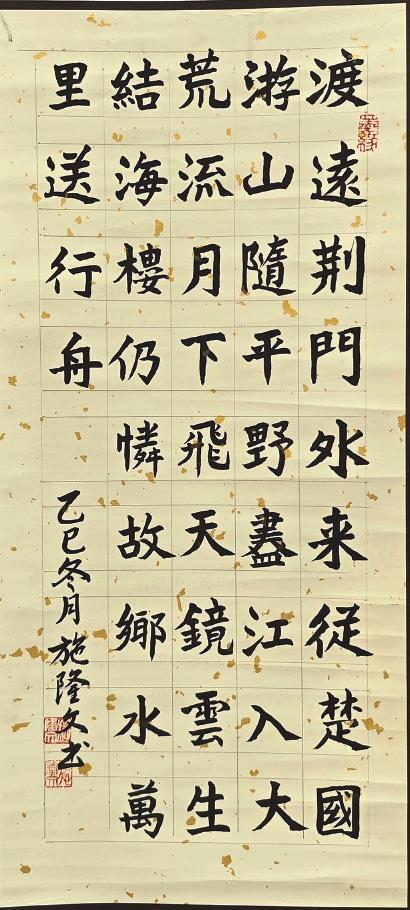 渡遠荆門外来從楚國
游山隨平野盡江入大
荒流月下飛天鏡雲生
結海樓仍憐故鄉水萬
里送行舟
乙巳冬月施隆文书